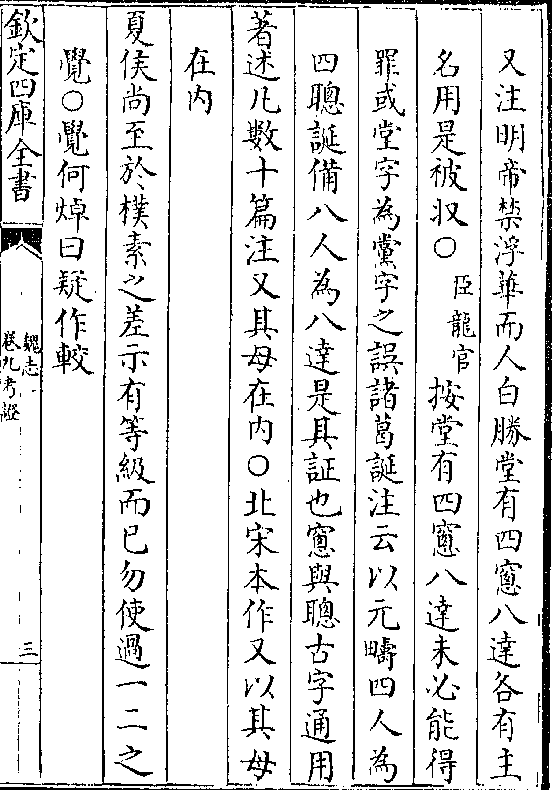 又注明帝禁浮華而人白勝堂有四窻八達各有主
名用是被収〇臣龍官按堂有四窻八達未必能得
罪或堂字為黨字之誤諸葛誕注云以元疇四人為
四聰誕備八人為八達是其証也窻與聰古字通用
著述凡數十篇注又其母在内〇北宋本作又以其母
在内
夏侯尚至於樸素之差示有等級而已勿使過一二之
覺〇覺何焯曰疑作較
欽定四庫全書
魏志
卷九考證
三